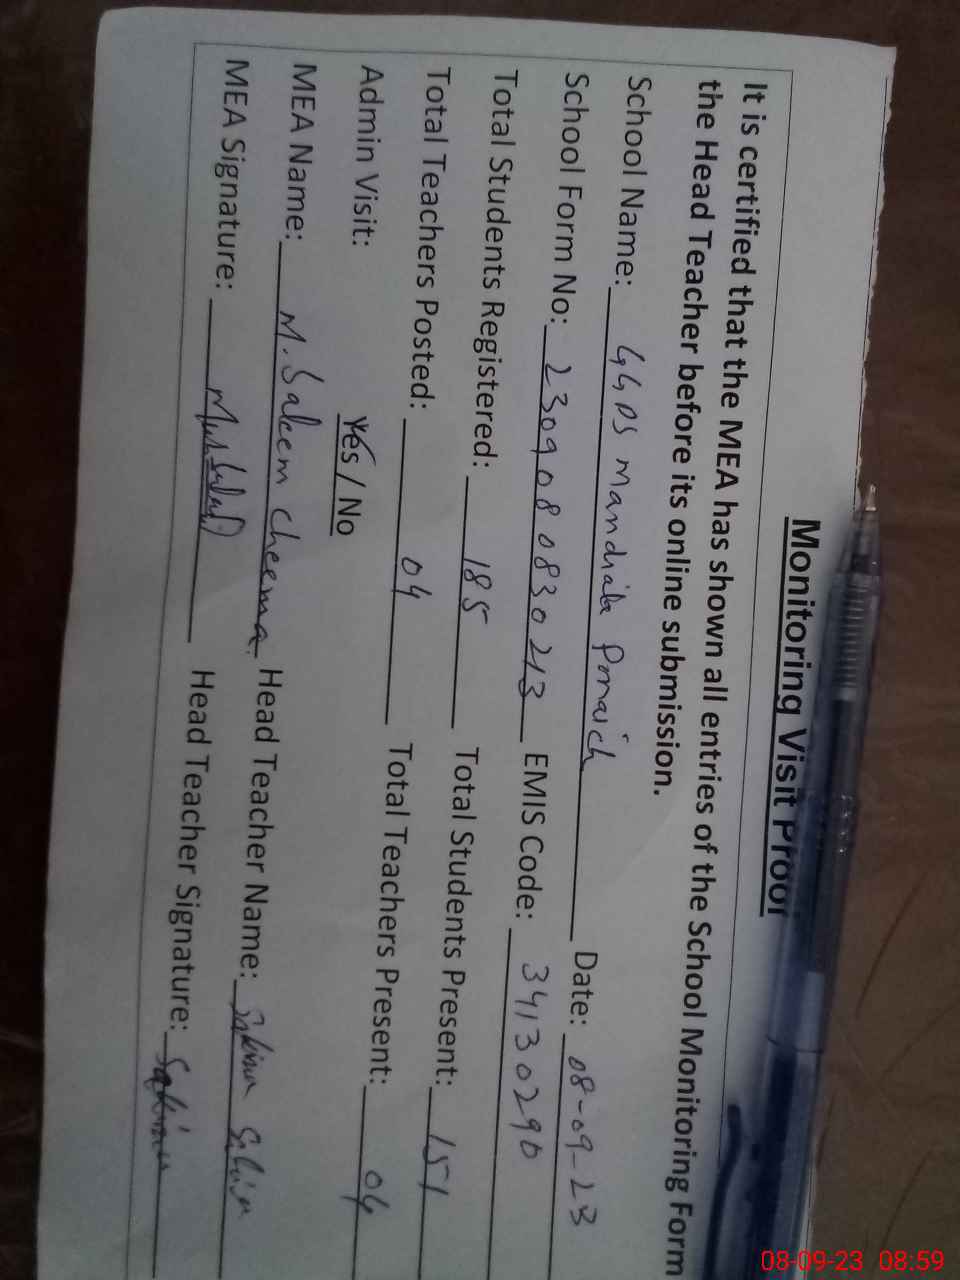 Monitoring Visit Proof
It is certified that the MEA has shown all entries of the School Monitoring Form
the Head Teacher before its online submission.
School Name: GGPS Mandiala Poraich Date: 08-09-23
School Form No: 230908 0830213 EMIS Code: 34130290
Total Students Registered: 185 Total Students Present: 151
Total Teachers Posted: 04 Total Teachers Present: 04
Admin Visit: Yes / No
MEA Name: M. Saleem Cheema Head Teacher Name: Sakina
MEA Signature: Head Teacher Signature: Sakina
08-09-23 08:59